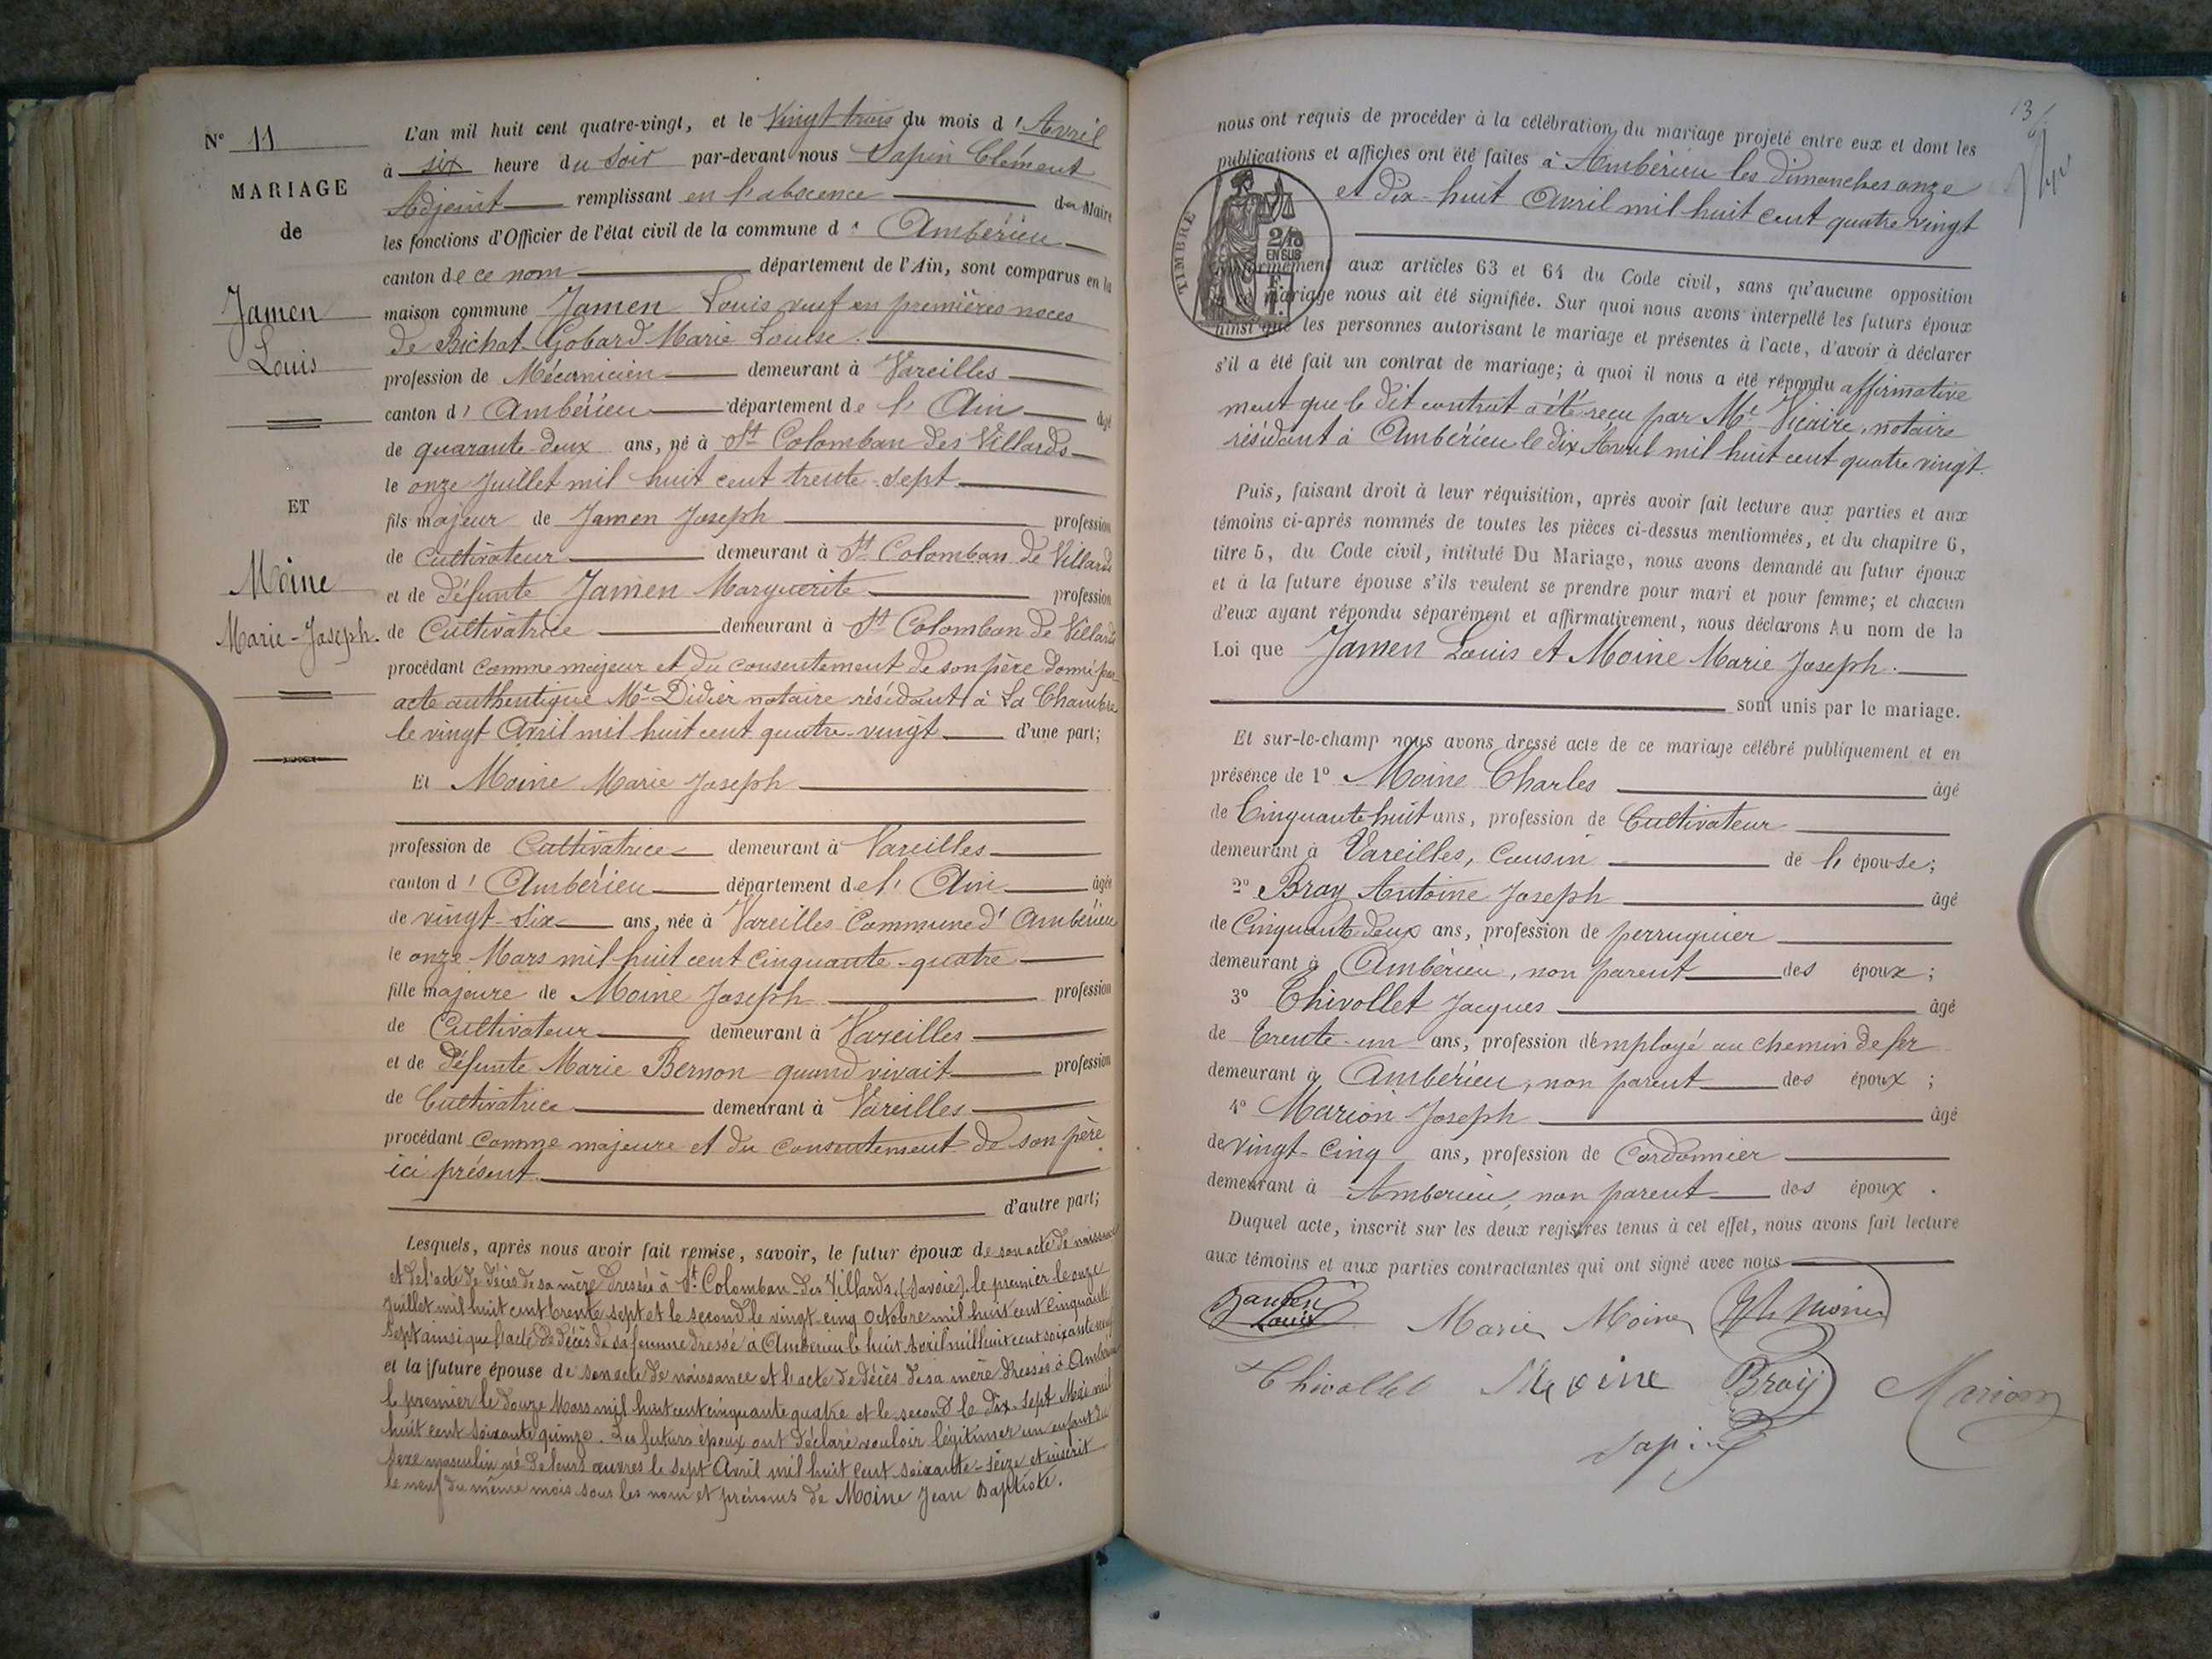 N° 11
MARIAGE
de
Jamen
Louis
ET
Moine
Marie-Joseph.
L'an mil huit cent quatre-vingt, et le Vingt trois du mois d'Avril
à six heure du Soir par-devant nous Sapin Clément
Adjoint remplissant en l'abscence du Maire
les fonctions d'Officier de l'état civil de la commune d'Ambérieu
canton de ce nom département de l'Ain, sont comparus en la
maison commune Jamen Louis veuf en premières noces
de Bichat-Gobard Marie Louise.
profession de Mécanicien demeurant à Vareilles
canton d'Ambérieu département de l'Ain âgé
de quarante-deux ans, né à St Colomban des Villards
le onze Juillet mil huit cent trente-sept
fils majeur de Jamen Joseph profession
de Cultivateur demeurant à St Colomban de Villards
et de défunte Jamen Marguerite profession
de Cultivatrice demeurant à St Colomban de Villards
procédant comme majeur et du consentement de son père donné par
acte authentique Me Didier notaire résidant à La Chambre
le vingt Avril mil huit cent quatre-vingt d'une part;
Et Moine Marie Joseph
profession de Cultivatrice demeurant à Vareilles
canton d'Ambérieu département de l'Ain âgée
de vingt-six ans, née à Vareilles Commune d'Ambérieu
le onze Mars mil huit cent cinquante-quatre
fille majeure de Moine Joseph profession
de Cultivateur demeurant à Vareilles
et de défunte Marie Bernon quand vivait profession
de Cultivatrice demeurant à Vareilles
procédant comme majeure et du consentement de son père
ici présent.
d'autre part;
Lesquels, après nous avoir fait remise, savoir, le futur époux de son acte de naissance
et de l'acte de décès de sa mère dressés à St Colomban-des-Villards, (Savoie), le premier le onze
Juillet mil huit cent trente sept et le second le vingt-cinq Octobre mil huit cent cinquante
sept ainsi que l'acte de décès de sa femme dressé à Ambérieu le huit Avril mil huit cent soixante neuf
et la future épouse de son acte de naissance et l'acte de décès de sa mère dressés à Ambérieu
le premier le douze Mars mil huit cent cinquante quatre et le second le dix-sept Mai mil
huit cent soixante quinze. Les futurs époux ont déclaré vouloir légitimer un enfant du
sexe masculin né de leurs œuvres le sept Avril mil huit cent soixante-seize et inscrit
le neuf du même mois sous les nom et prénoms de Moine Jean Baptiste.
13
nous ont requis de procéder à la célébration du mariage projeté entre eux et dont les
publications et affiches ont été faites à Ambérieu les dimanches onze
et dix-huit Avril mil huit cent quatre vingt
TIMBRE
2/10
EN SUS
conformément aux articles 63 et 64 du Code civil, sans qu'aucune opposition
à ce mariage nous ait été signifiée. Sur quoi nous avons interpellé les futurs époux
ainsi que les personnes autorisant le mariage et présentes à l'acte, d'avoir à déclarer
s'il a été fait un contrat de mariage; à quoi il nous a été répondu affirmative
ment que le dit contrat a été reçu par Me Vicaire, notaire
résidant à Ambérieu le dix Avril mil huit cent quatre vingt.
Puis, faisant droit à leur réquisition, après avoir fait lecture aux parties et aux
témoins ci-après nommés de toutes les pièces ci-dessus mentionnées, et du chapitre 6,
titre 5, du Code civil, intitulé Du Mariage, nous avons demandé au futur époux
et à la future épouse s'ils veulent se prendre pour mari et pour femme; et chacun
d'eux ayant répondu séparément et affirmativement, nous déclarons Au nom de la
Loi que Jamen Louis et Moine Marie Joseph.
sont unis par le mariage.
Et sur-le-champ nous avons dressé acte de ce mariage célébré publiquement et en
présence de 1° Moine Charles âgé
de Cinquante huit ans, profession de Cultivateur
demeurant à Vareilles, Cousin de l'épouse;
2° Bray Antoine Joseph âgé
de Cinquante deux ans, profession de perruquier
demeurant à Ambérieu, non parent des époux;
3° Thivollet Jacques âgé
de trente-un ans, profession d'employé au chemin de fer
demeurant à Ambérieu, non parent des époux;
4° Marion Joseph âgé
de vingt-cinq ans, profession de Cordonnier
demeurant à Amberieu, non parent des époux.
Duquel acte, inscrit sur les deux registres tenus à cet effet, nous avons fait lecture
aux témoins et aux parties contractantes qui ont signé avec nous
Louis Marie Moine Moine
Thivollet Moine Bray Marion
Sapin